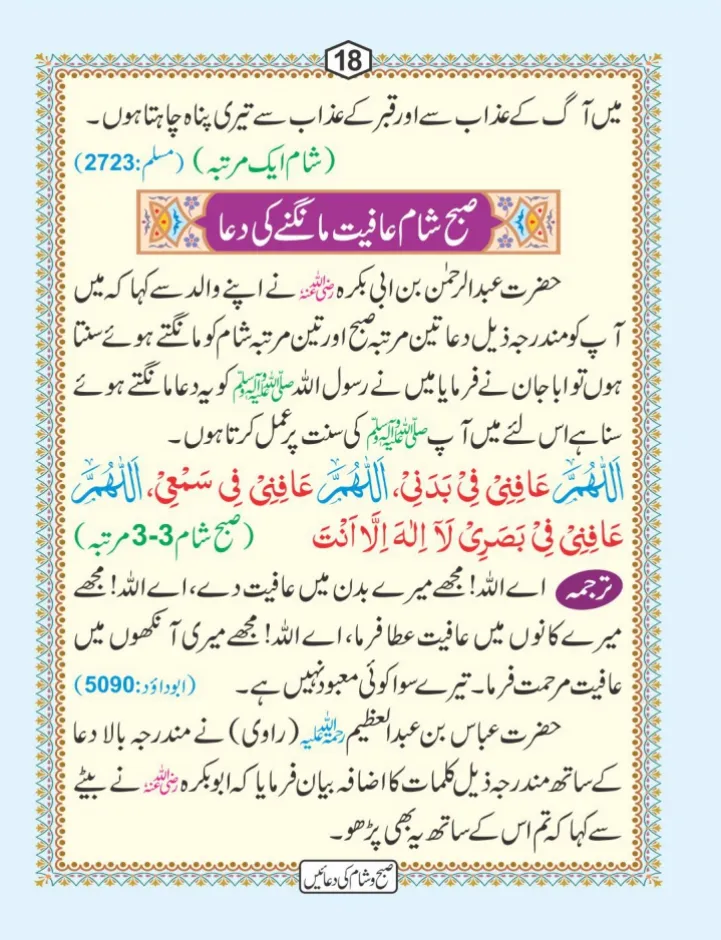 18
میں آگ کے عذاب سے اور قبر کے عذاب سے تیری پناہ چاہتا ہوں۔
(شام ایک مرتبہ) (مسلم:2723)
صبح شام عافیت مانگنے کی دعا
حضرت عبدالرحمٰن بن ابی بکرہ رضی اللہ عنہ نے اپنے والد سے کہا کہ میں
آپ کو مندرجہ ذیل دعا تین مرتبہ صبح اور تین مرتبہ شام کو مانگتے ہوئے سنتا
ہوں تو ابا جان نے فرمایا میں نے رسول اللہ ﷺ کو یہ دعا مانگتے ہوئے
سنا ہے اس لئے میں آپ ﷺ کی سنت پر عمل کرتا ہوں۔
اَللّٰهُمَّ عَافِنِیْ فِیْ بَدَنِیْ، اَللّٰهُمَّ عَافِنِیْ فِی سَمْعِیْ، اَللّٰهُمَّ
عَافِنِیْ فِیْ بَصَرِیْ لَآ اِلٰهَ اِلَّا اَنْتَ (صبح شام 3-3 مرتبہ)
ترجمہ اے اللہ! مجھے میرے بدن میں عافیت دے، اے اللہ! مجھے
میرے کانوں میں عافیت عطا فرما، اے اللہ! مجھے میری آنکھوں میں
عافیت مرحمت فرما۔ تیرے سوا کوئی معبود نہیں ہے۔ (ابوداؤد:5090)
حضرت عباس بن عبدالعظیم رحمۃ اللہ علیہ (راوی) نے مندرجہ بالا دعا
کے ساتھ مندرجہ ذیل کلمات کا اضافہ بیان فرمایا کہ ابوبکرہ رضی اللہ عنہ نے بیٹے
سے کہا کہ تم اس کے ساتھ یہ بھی پڑھو۔
صبح و شام کی دعائیں